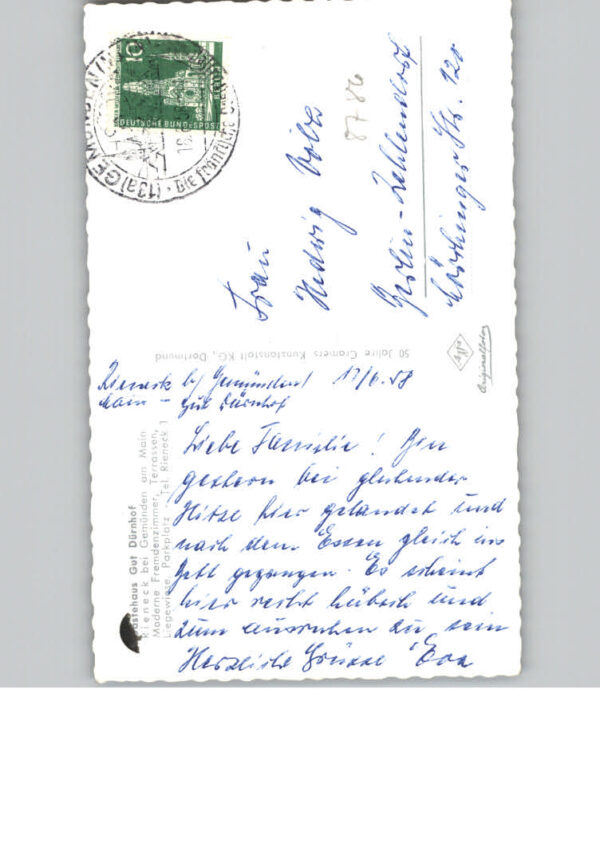 10
DEUTSCHE BUNDESPOST
(13a) GEMÜNDEN
Frau
Hedwig
Berlin-Zehlendorf
Str. 120
8786
50 Jahre Cramers Kunstanstalt KG., Dortmund
Agfa
Originalfoto
Rieneck b/ Gemünden/ 17/6.58
Main - Gut Dürnhof
Liebe Familie! Bin
gestern bei glühender
Hitze hier gelandet und
nach dem Essen gleich ins
Bett gegangen. Es scheint
hier recht hübsch und
zum ausruhen zu sein
Herzliche Grüsse Eva
Gästehaus Gut Dürnhof
Rieneck bei Gemünden am Main
Moderne Fremdenzimmer, Terrassen,
Liegewiese, Parkplatz - Tel. Rieneck 1